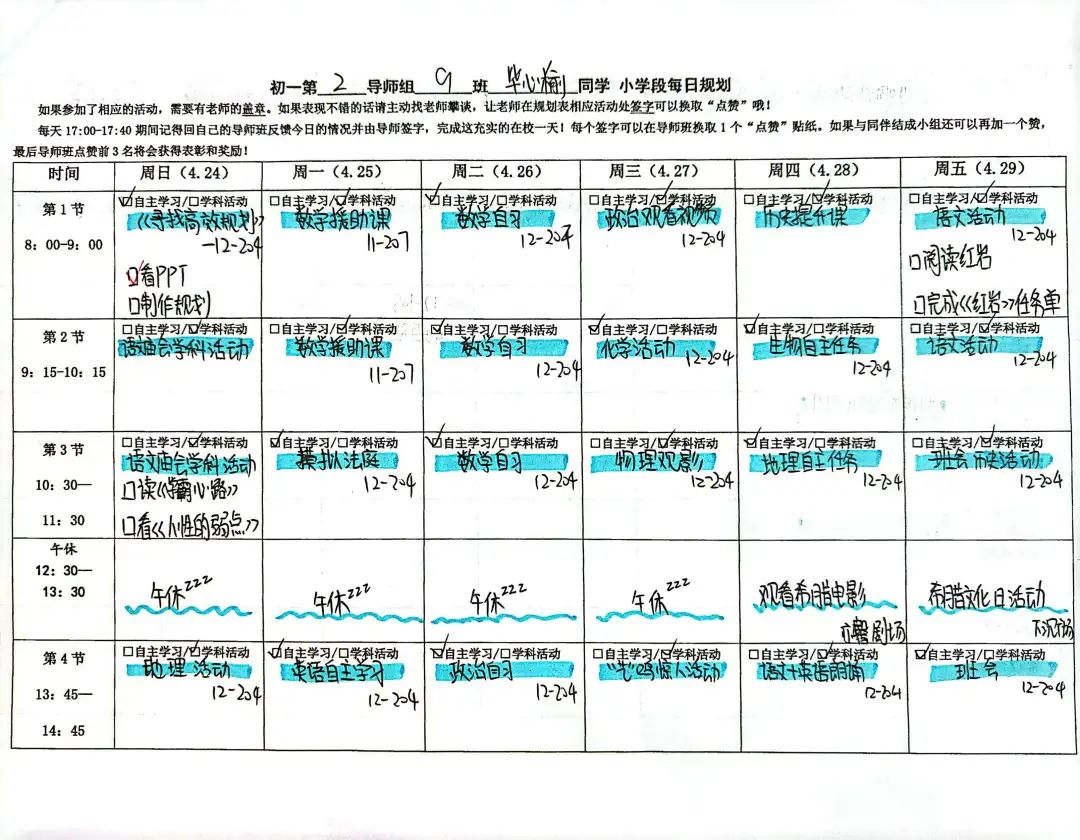 初一第 2 导师组 9 班 毕心愉 同学 小学段每日规划
如果参加了相应的活动，需要有老师的盖章。如果表现不错的话请主动找老师攀谈，让老师在规划表相应活动处签字可以换取“点赞”哦！
每天 17:00-17:40 期间记得回自己的导师班反馈今日的情况并由导师签字，完成这充实的在校一天！每个签字可以在导师班换取 1 个“点赞”贴纸。如果与同伴结成小组还可以再加一个赞，
最后导师班点赞前 3 名将会获得表彰和奖励！
时间 周日（4.24） 周一（4.25） 周二（4.26） 周三（4.27） 周四（4.28） 周五（4.29）
第 1 节
8：00-9：00
☑自主学习/☐学科活动
《寻找高效规划》
-12-204
☑看PPT
☐制作规划
☐自主学习/☑学科活动
数学援助课
11-207
☑自主学习/☐学科活动
数学自习
12-204
☐自主学习/☑学科活动
政治观看视频
12-204
☐自主学习/☑学科活动
历史提升课
☐自主学习/☑学科活动
语文活动
12-204
☐阅读红岩
☐完成《红岩》任务单
第 2 节
9：15-10：15
☐自主学习/☑学科活动
语庙会学科活动
☐自主学习/☑学科活动
数学援助课
11-207
☑自主学习/☐学科活动
数学自习
12-204
☑自主学习/☐学科活动
化学活动
12-204
☑自主学习/☐学科活动
生物自主任务
12-204
☐自主学习/☑学科活动
语文活动
12-204
第 3 节
10：30—
11：30
☐自主学习/☑学科活动
语文庙会学科活动
☐读《学霸心路》
☐看《人性的弱点》
☑自主学习/☐学科活动
模拟法庭
12-204
☑自主学习/☐学科活动
数学自习
12-204
☐自主学习/☑学科活动
物理观影
12-204
☑自主学习/☐学科活动
地理自主任务
12-204
☐自主学习/☑学科活动
班会 历史活动
12-204
午休
12：30—
13：30
午休zzz
午休zzz
午休zzz
午休zzz
观看希腊电影
剧场
希腊文化日活动
第 4 节
13：45—
14：45
☐自主学习/☑学科活动
地理活动
12-204
☑自主学习/☐学科活动
英语自主学习
12-204
☑自主学习/☐学科活动
政治自习
12-204
☐自主学习/☑学科活动
鸣惊人活动
☐自主学习/☑学科活动
语文+英语朗诵
12-204
☑自主学习/☐学科活动
班会
12-204